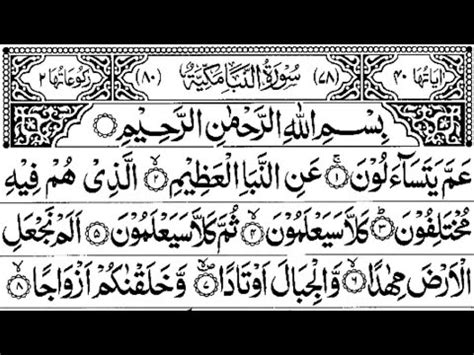 اٰیَاتُهَا ۴۰ (۷۸) سُوْرَةُ النَّبَاِ مَكِّیَّةٌ (۸۰) رُكُوْعَاتُهَا ۲
بِسْمِ اللّٰهِ الرَّحْمٰنِ الرَّحِیْمِ
عَمَّ یَتَسَآءَلُوْنَ ۱ عَنِ النَّبَاِ الْعَظِیْمِ ۲ الَّذِیْ هُمْ فِیْهِ
مُخْتَلِفُوْنَ ۳ كَلَّا سَیَعْلَمُوْنَ ۴ ثُمَّ كَلَّا سَیَعْلَمُوْنَ ۵ اَلَمْ نَجْعَلِ
الْاَرْضَ مِهٰدًا ۶ وَّالْجِبَالَ اَوْتَادًا ۷ وَّخَلَقْنٰكُمْ اَزْوَاجًا ۸